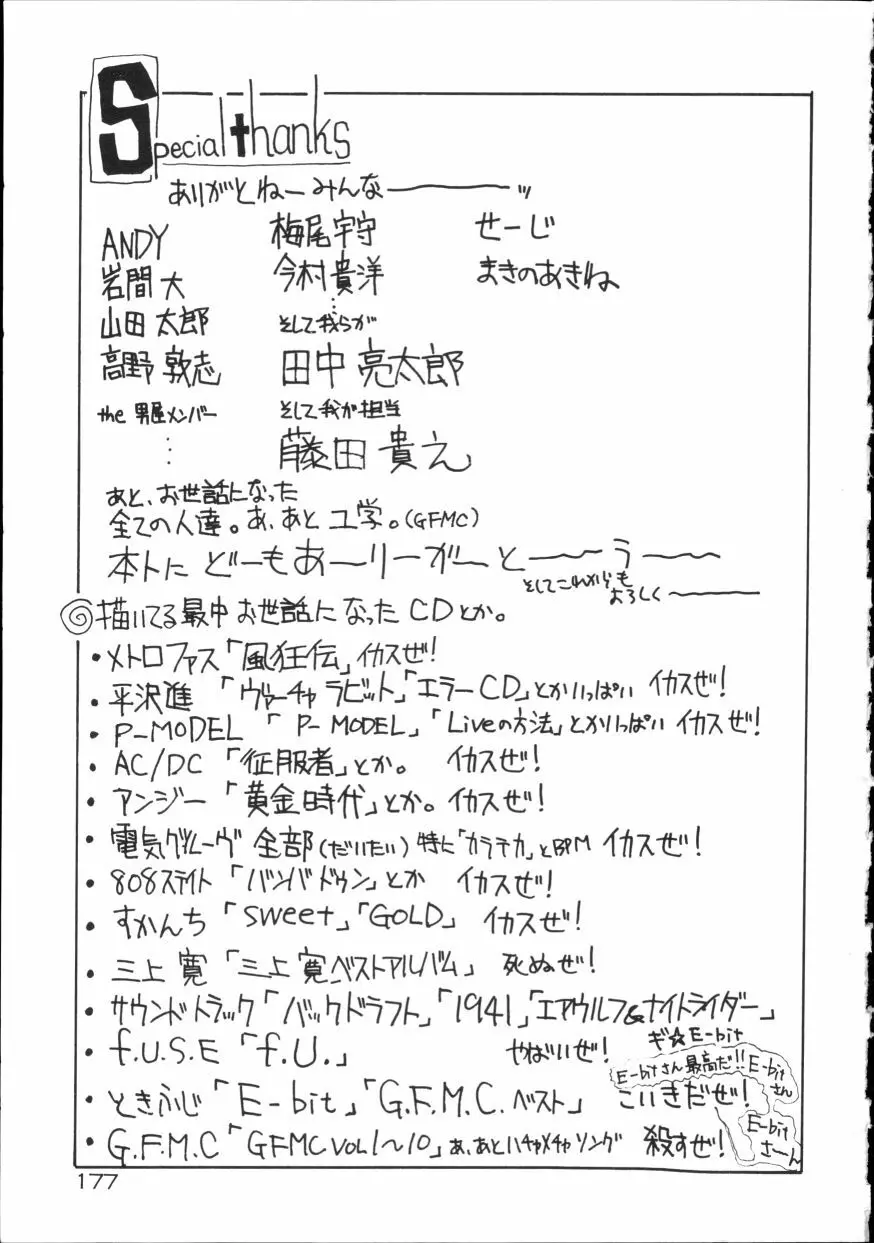 Special thanks
ありがとねーみんな————ッ
ANDY
岩間 大
山田 太郎
高野 敦志
the 男屋メンバー
⋮
梅尾宇守
今村貴洋
⋮
そして我らが
田中 亮太郎
そして我が担当
藤田 貴え
せーじ
まきのあきね
あと、お世話になった
全ての人達。あ、あと ユ学。(GFMC)
本トに どーもあーりーがーとーーうーー
そしてこれからも
よろしく〜———
◎描いてる最中お世話になったCDとか。
・メトロファス「風狂伝」イカスぜ!
・平沢進 「ヴァーチャラビット」「エラーCD」とかいっぱい イカスぜ!
・P-MODEL 「P-MODEL」「Liveの方法」とかいっぱい イカスぜ!
・AC/DC 「征服者」とか。 イカスぜ!
・アンジー「黄金時代」とか。イカスぜ!
・電気グルーヴ 全部(だいたい)特に「カラテカ」とBPM イカスぜ!
・808ステイト「バンバドゥン」とか イカスぜ!
・すかんち「sweet」「GOLD」 イカスぜ!
・三上 寛「三上 寛ベストアルバム」 死ぬぜ!
・サウンドトラック「バックドラフト」「1941」「エアウルフ&ナイトライダー」
・f.U.S.E「f.U.」 やばいぜ!
ギ☆E-bit
E-bitさん最高だ!!
E-bitさん
・ときふじ「E-bit」「G.F.M.C.ベスト」 こいきだぜ!
E-bit
さーん
・G.F.M.C「GFMC VOL1〜10」あ、あとハチャメチャソング 殺すぜ!
177